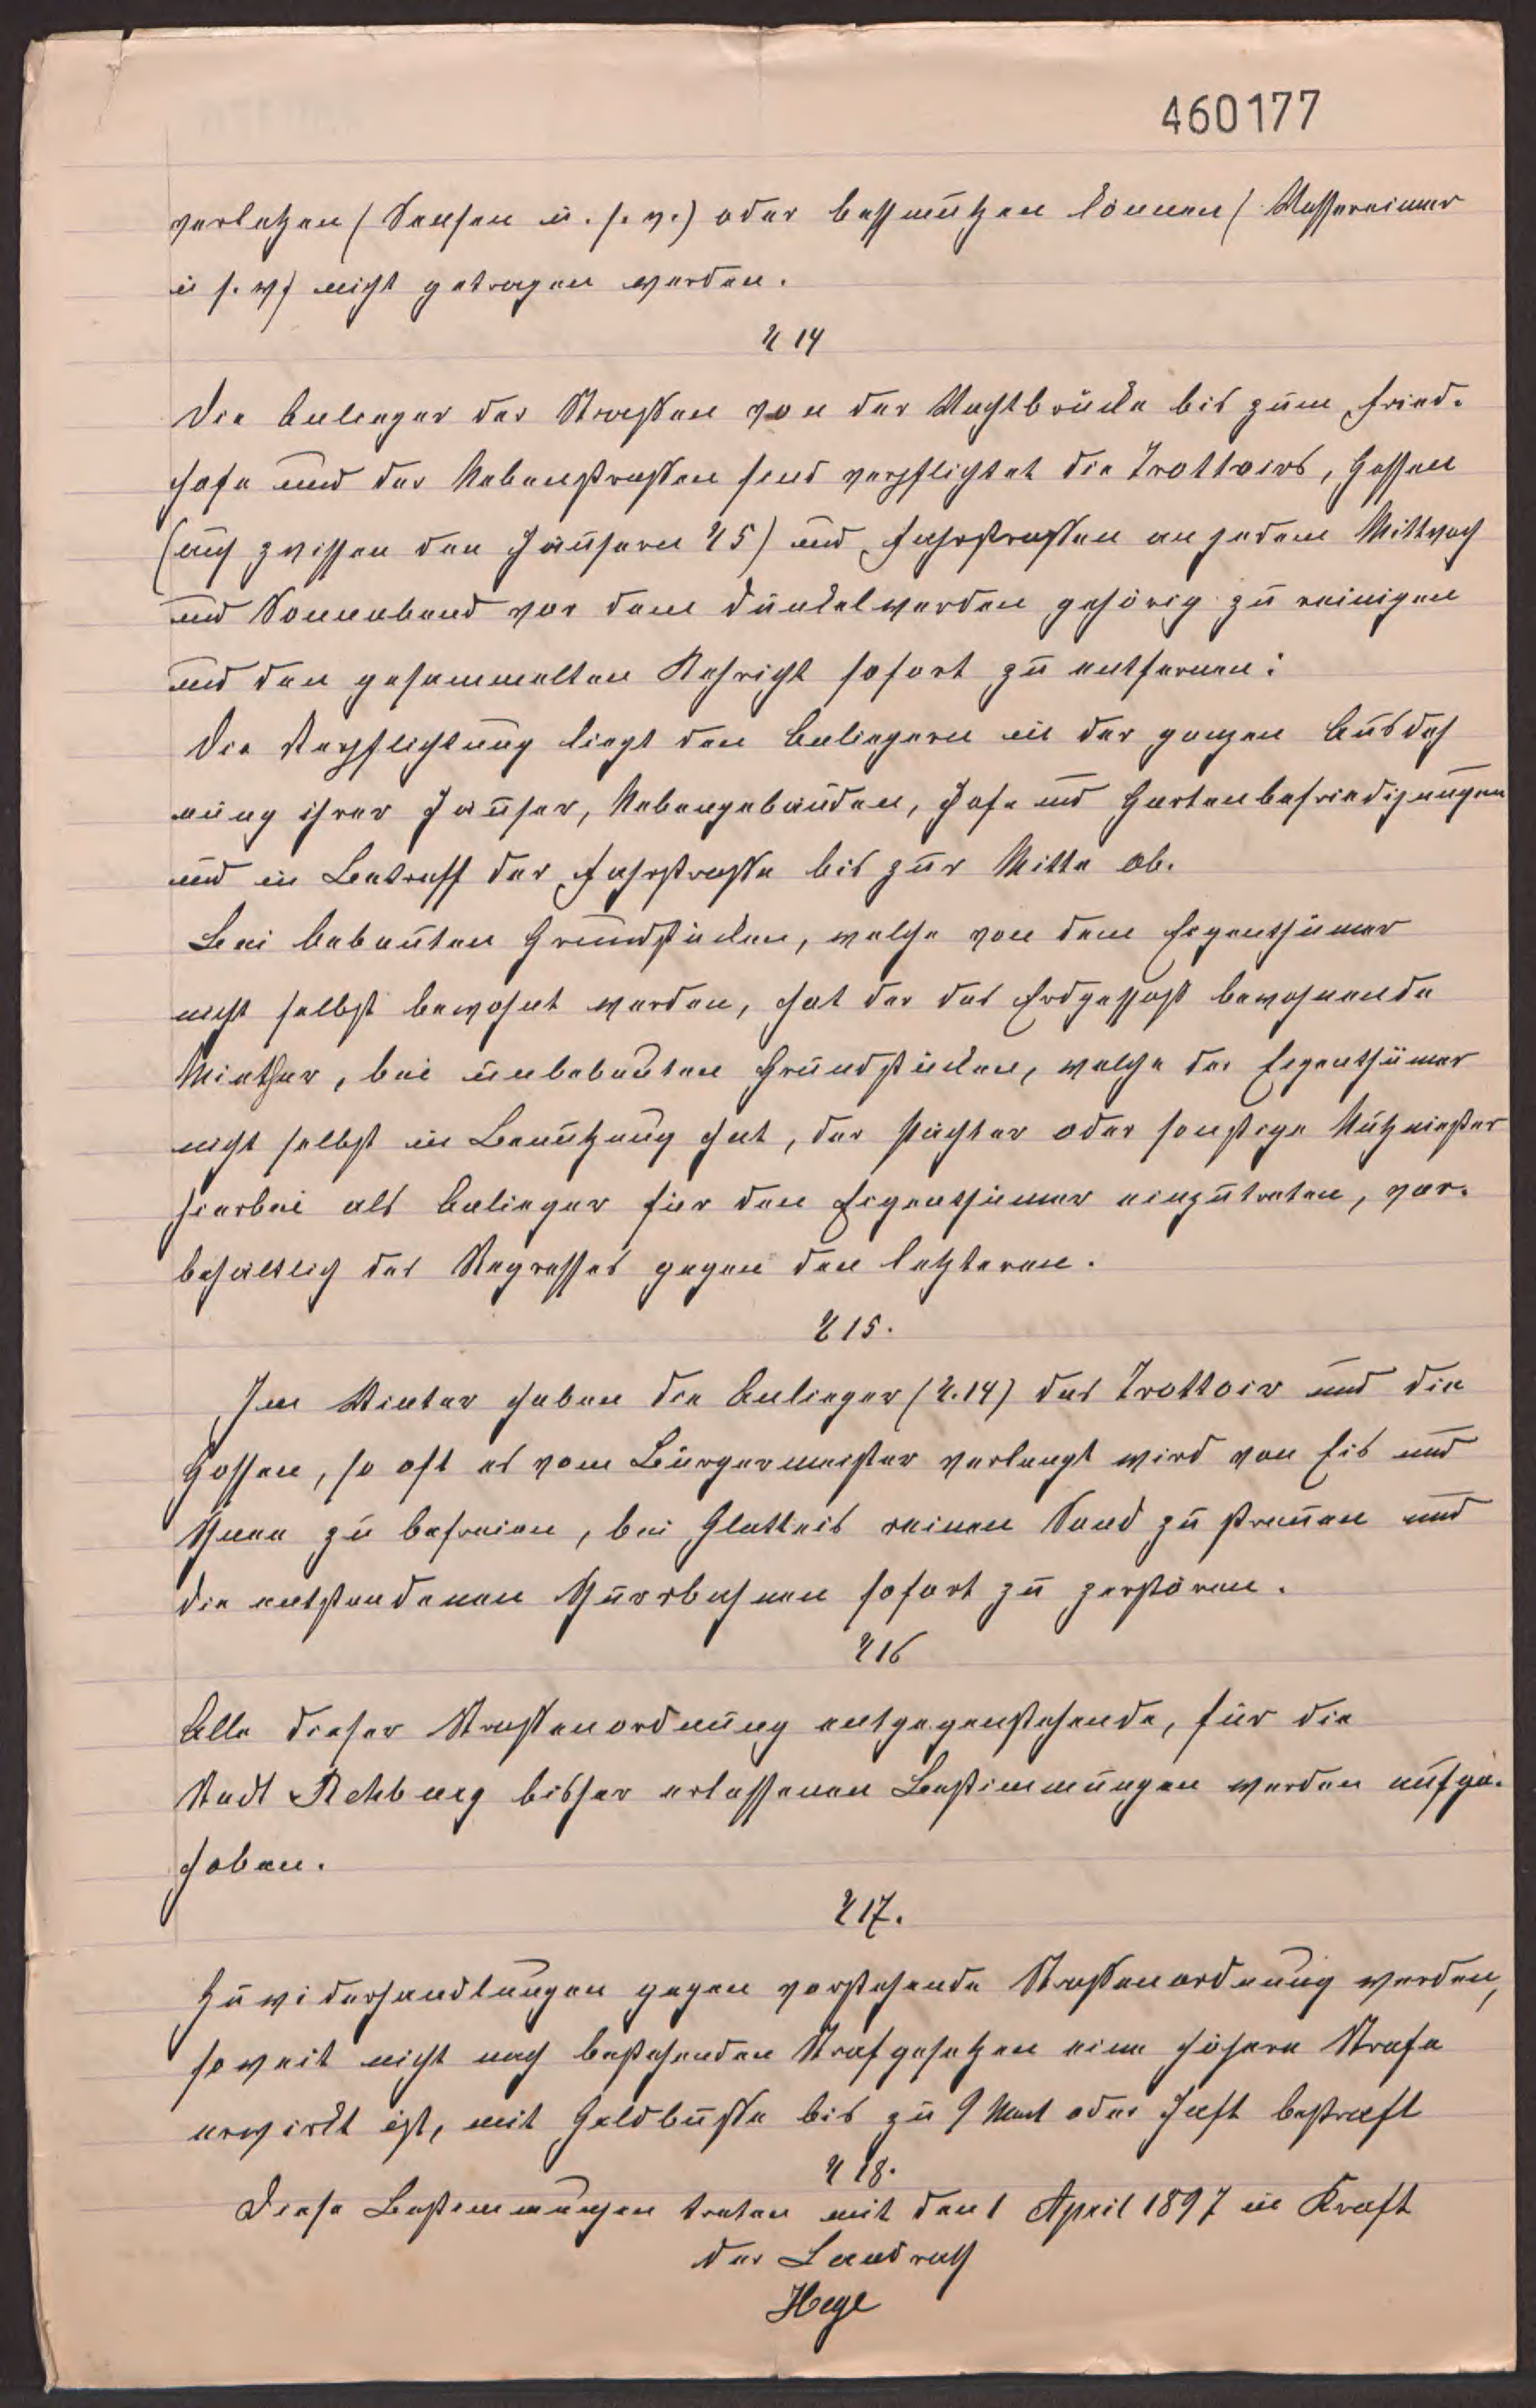 460177
verletzen (Sensen u. s. w.) oder beschmutzen können (Wassereimer
u s. w) nicht getragen werden.
§ 14
Die Anlieger der Straßen von der Wachtbrücke bis zum Fried-
hofe und der Nebenstraßen sind verpflichtet die Trottoirs, Gossen
(auch zwischen den Häusern § 5) und Fahrstraßen an jedem Mittwoch
und Sonnabend vor dem Dunkelwerden gehörig zu reinigen
und den gesammelten Kehricht sofort zu entfernen:
Die Verpflichtung liegt den Anliegern in der ganzen Ausdeh
nung ihrer Häuser, Nebengebäuden, Hofe und Gartenbefriedigungen
und in Betreff der Fahrstraße bis zur Mitte ob.
Bei bebauten Grundstücken, welche von dem Eigenthümer
nicht selbst bewohnt werden, hat der das Erdgeschoß bewohnende
Miether, bei unbebauten Grundstücken, welche der Eigenthümer
nicht selbst in Benutzung hat, der Pächter oder sonstige Nutznießer
hierbei als Anlieger für den Eigenthümer einzutreten, vor-
behältlich des Regresses gegen den letzteren.
§ 15.
Im Winter haben die Anlieger (§. 14) das Trottoir und die
Gossen, so oft es vom Bürgermeister verlangt wird von Eis und
Schnee zu befreien, bei Glatteis reinen Sand zu streuen und
die entstandenen Schurrbahnen sofort zu zerstören.
§ 16
Alle dieser Straßenordnung entgegenstehende, für die
Stadt Rehburg bisher erlassenen Bestimmungen werden aufge-
hoben.
§ 17.
Zuwiderhandlungen gegen vorstehende Straßenordnung werden,
soweit nicht nach bestehenden Strafgesetzen eine höhere Strafe
erwirkt ist, mit Geldbuße bis zu 9 Mark oder Haft bestraft
§ 18.
Diese Bestimmungen treten mit den 1 April 1897 in Kraft
Der Landrath